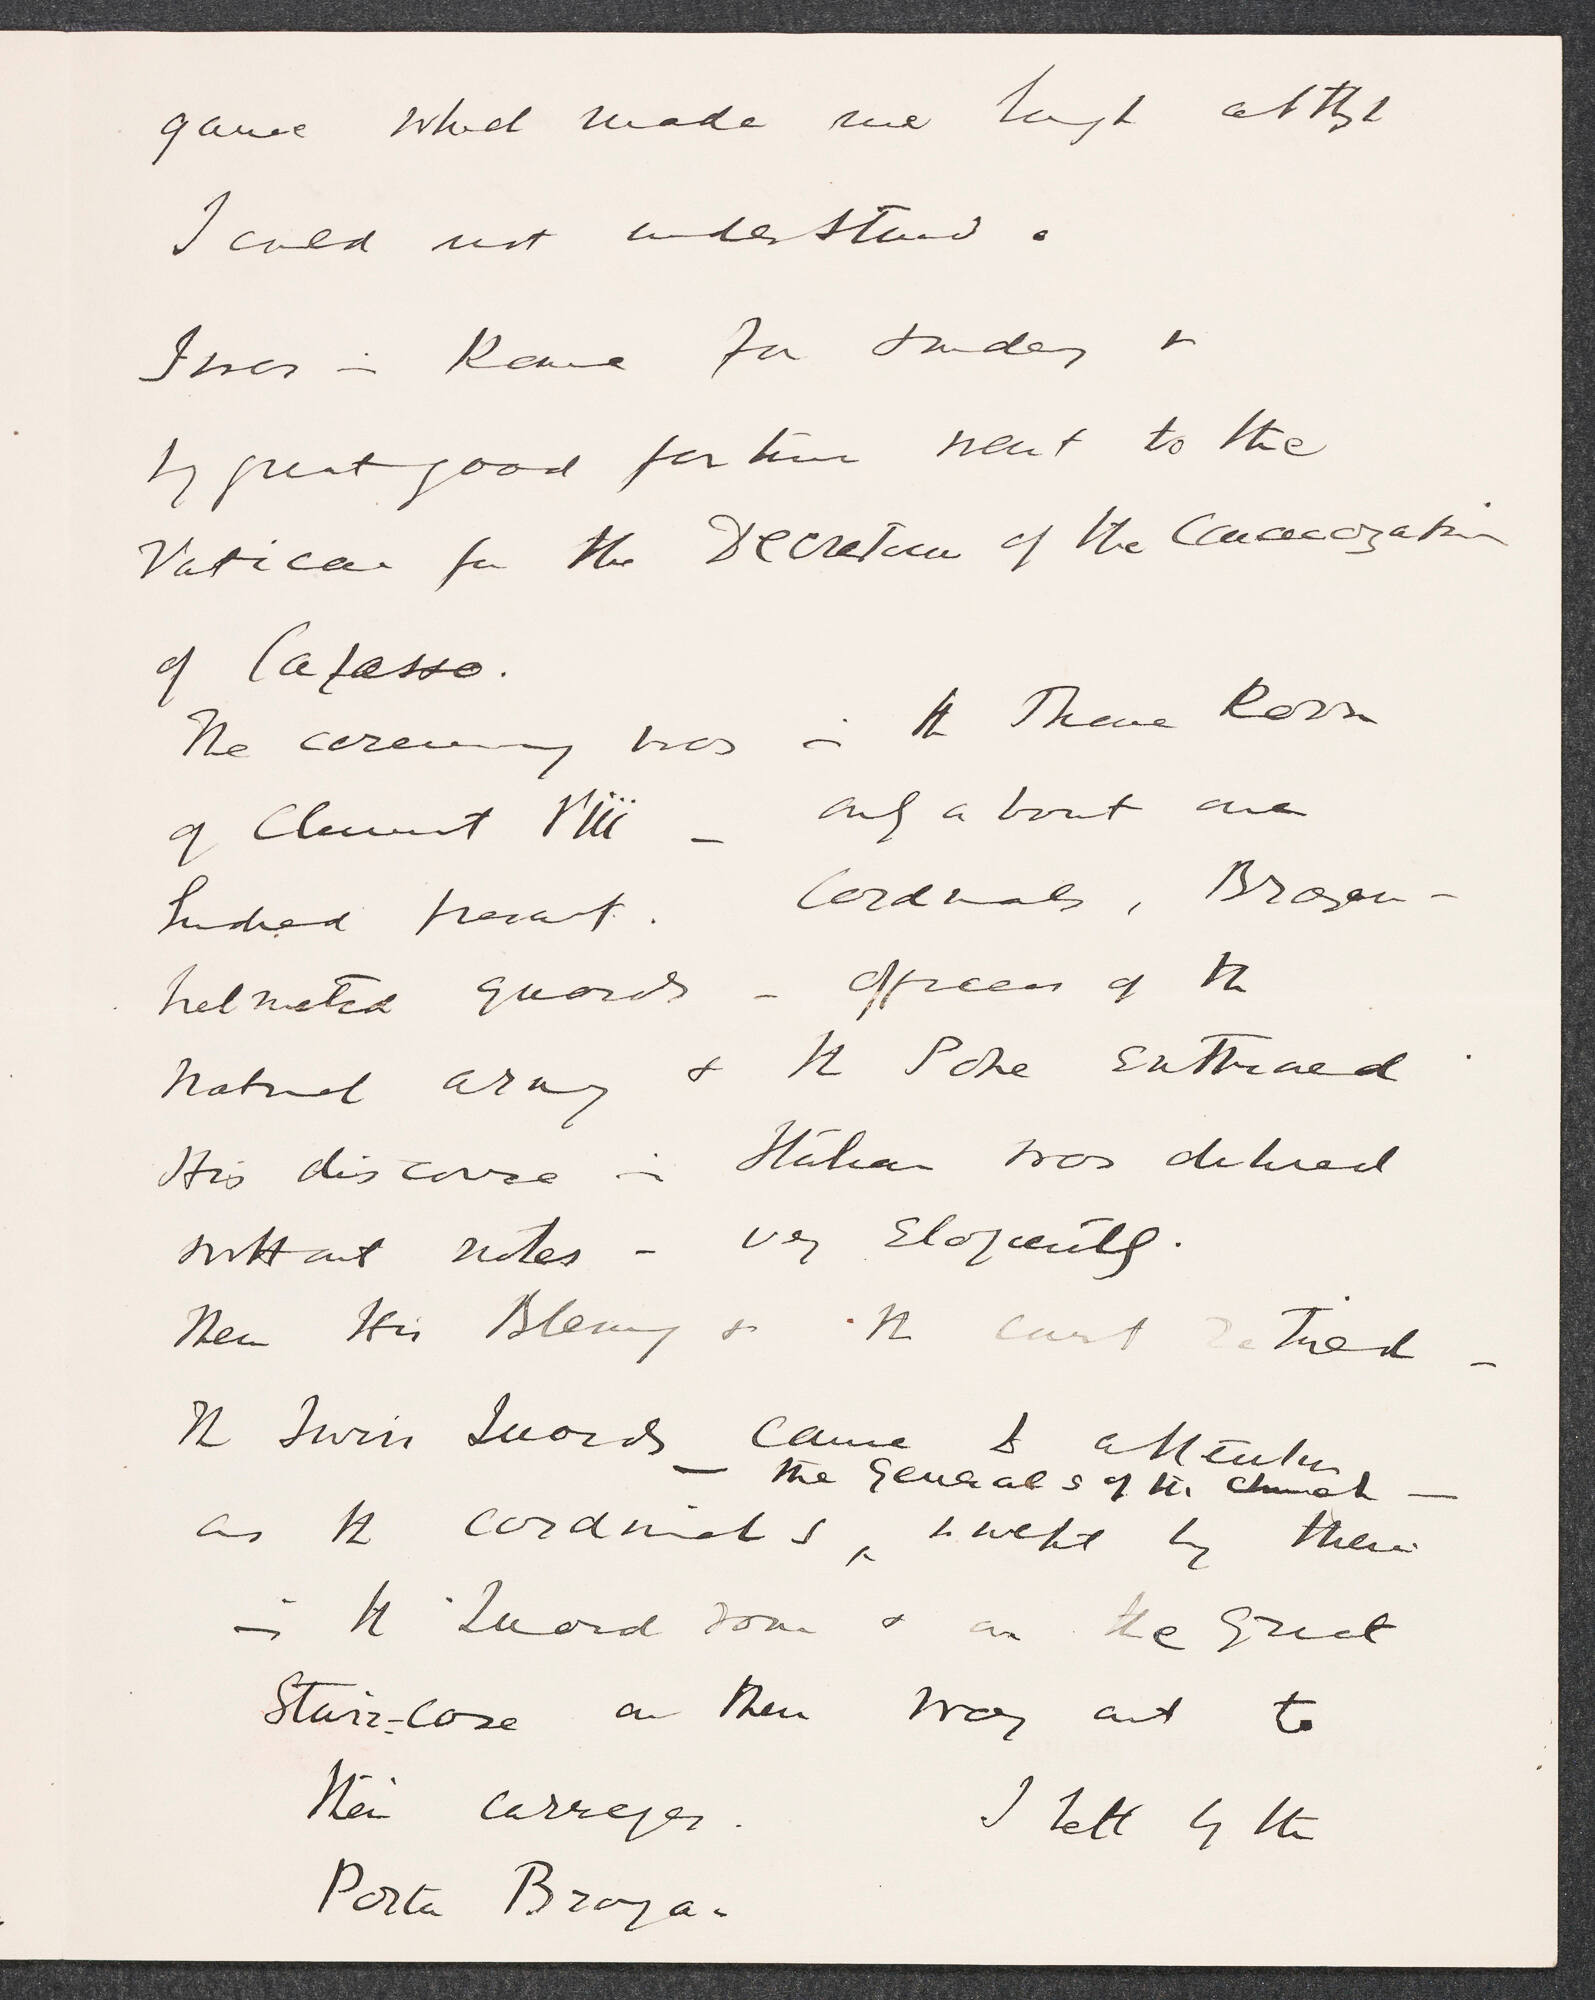 game which made me laugh although
I could not understand.
I was in Rome for Sunday &
by great good fortune went to the
Vatican for the Decretum of the Cannonization
of Cafasso.
The ceremony was in the Throne Room
of Clement Viii – only about one
hundred present. Cardinals, Brazen-
helmeted guards – officers of the
Natural army & the Pope enthroned
His discourse in Italian was delivered
without notes – very Eloquently.
Then His Blessing & the court retired –
the Swiss Guards came to attention
– the Generals of the Church –
as the cardinals, swept by them
in the Guard room & on the Great
Stair-case on their way out to
their carriages. I left by the
Porta Bronza.